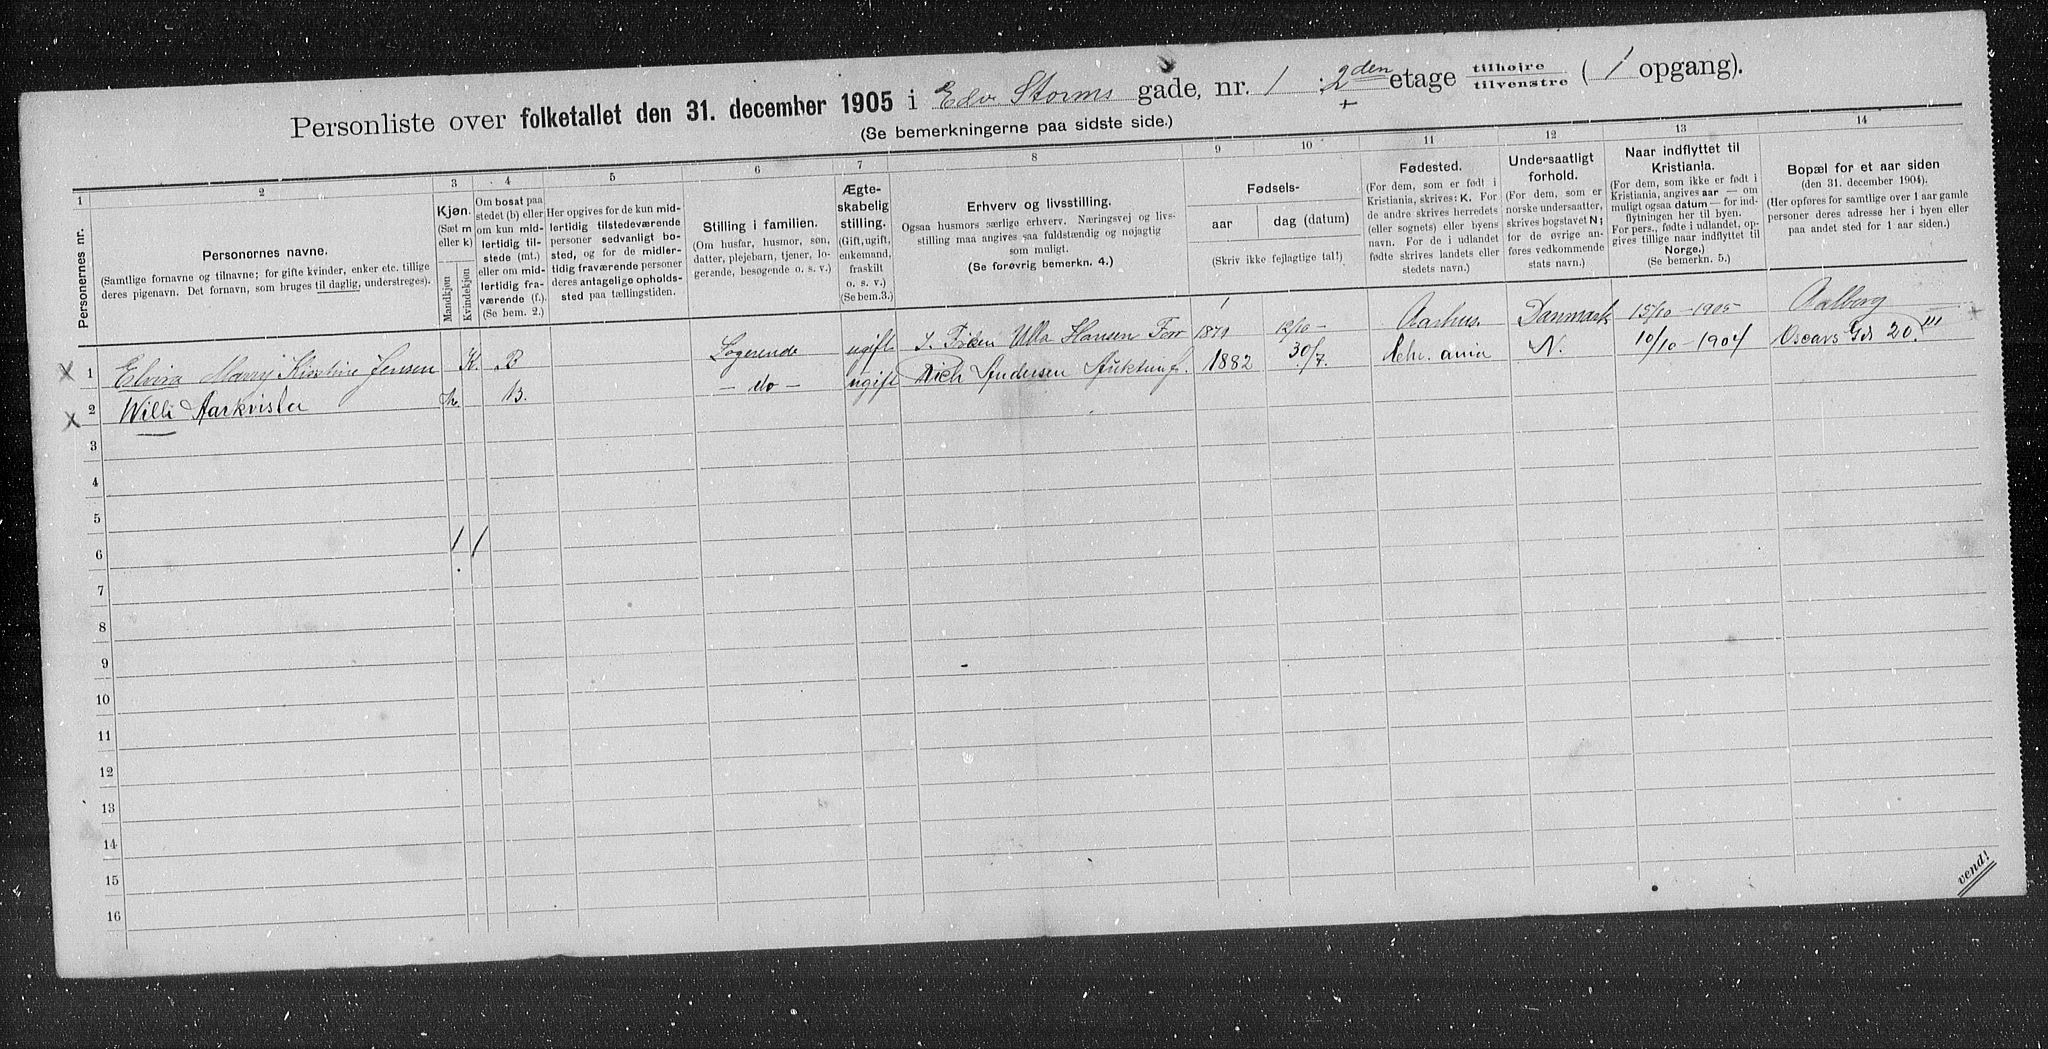 Personliste over folketallet den 31. december 1905 i Edv. Storms gade, nr. 1 . 2den etage tilhøire / tilvenstre ( 1 opgang).
(Se bemerkningerne paa sidste side.)
1 2 3 4 5 6 7 8 9 10 11 12 13 14
Personernes nr.
Personernes navne.
(Samtlige fornavne og tilnavne; for gifte kvinder, enker etc. tillige
deres pigenavn. Det fornavn, som bruges til daglig, understreges).
Kjøn.
(Sæt m
eller k)
Mandkjøn
Kvindekjøn
Om bosat paa
stedet (b) eller
om kun mid-
lertidig til-
stede (mt.)
eller om mid-
lertidig fra-
værende (f.)
(Se bem. 2.)
Her opgives for de kun mid-
lertidig tilstedeværende
personer sedvanlig bo-
sted, og for de midler-
tidig fraværende personer
deres antagelige opholds-
sted paa tællingstiden.
Stilling i familien.
(Om husfar, husmor, søn,
datter, plejebarn, tjener, lo-
gerende, besøgende o. s. v.)
Ægte-
skabelig
stilling.
(Gift, ugift,
enkemand,
fraskilt
o. s. v.)
(Se bem.3.)
Erhverv og livsstilling.
Ogsaa husmors særlige erhverv. Næringsvej og livs-
stilling maa angives saa fuldstændig og nøjagtig
som muligt.
(Se forøvrig bemerkn. 4.)
Fødsels-
aar
dag (datum)
(Skriv ikke fejlagtige tal!)
Fødested.
(For dem, som er født i
Kristiania, skrives: K. For
de andre skrives herredets
(eller sognets) eller byens
navn. For de i udlandet
fødte skrives landets eller
stedets navn.)
Undersaatligt
forhold.
(For dem, som er
norske undersaatter,
skrives bogstavet N;
for de øvrige an-
føres vedkommende
stats navn.)
Naar indflyttet til
Kristiania.
(For dem, som ikke er født i
Kristiania, angives aar — om
muligt ogsaa datum — for ind-
flytningen her til byen.
For pers., fødte i udlandet, op-
gives tillige naar indflyttet til
Norge.)
(Se bemerkn. 5.)
Bopæl for et aar siden
(den 31. december 1904).
(Her opføres for samtlige over 1 aar gamle
personer deres adresse her i byen eller
paa andet sted for 1 aar siden.)
x 1 Elvira Marry Kirstine Jensen K. B Logerende ugift Hansen 1879 12/10 - Aarhus. Danmark 15/10 - 1905 Aalborg
x 2 Willi Aarkvisla B. - do - ugift Andersen 1882 30/7. Chr. ania N. 10/10 - 1904 Oscars Gd 20 III
3
4
5
6 1 1
7
8
9
10
11
12
13
14
15
16
vend!